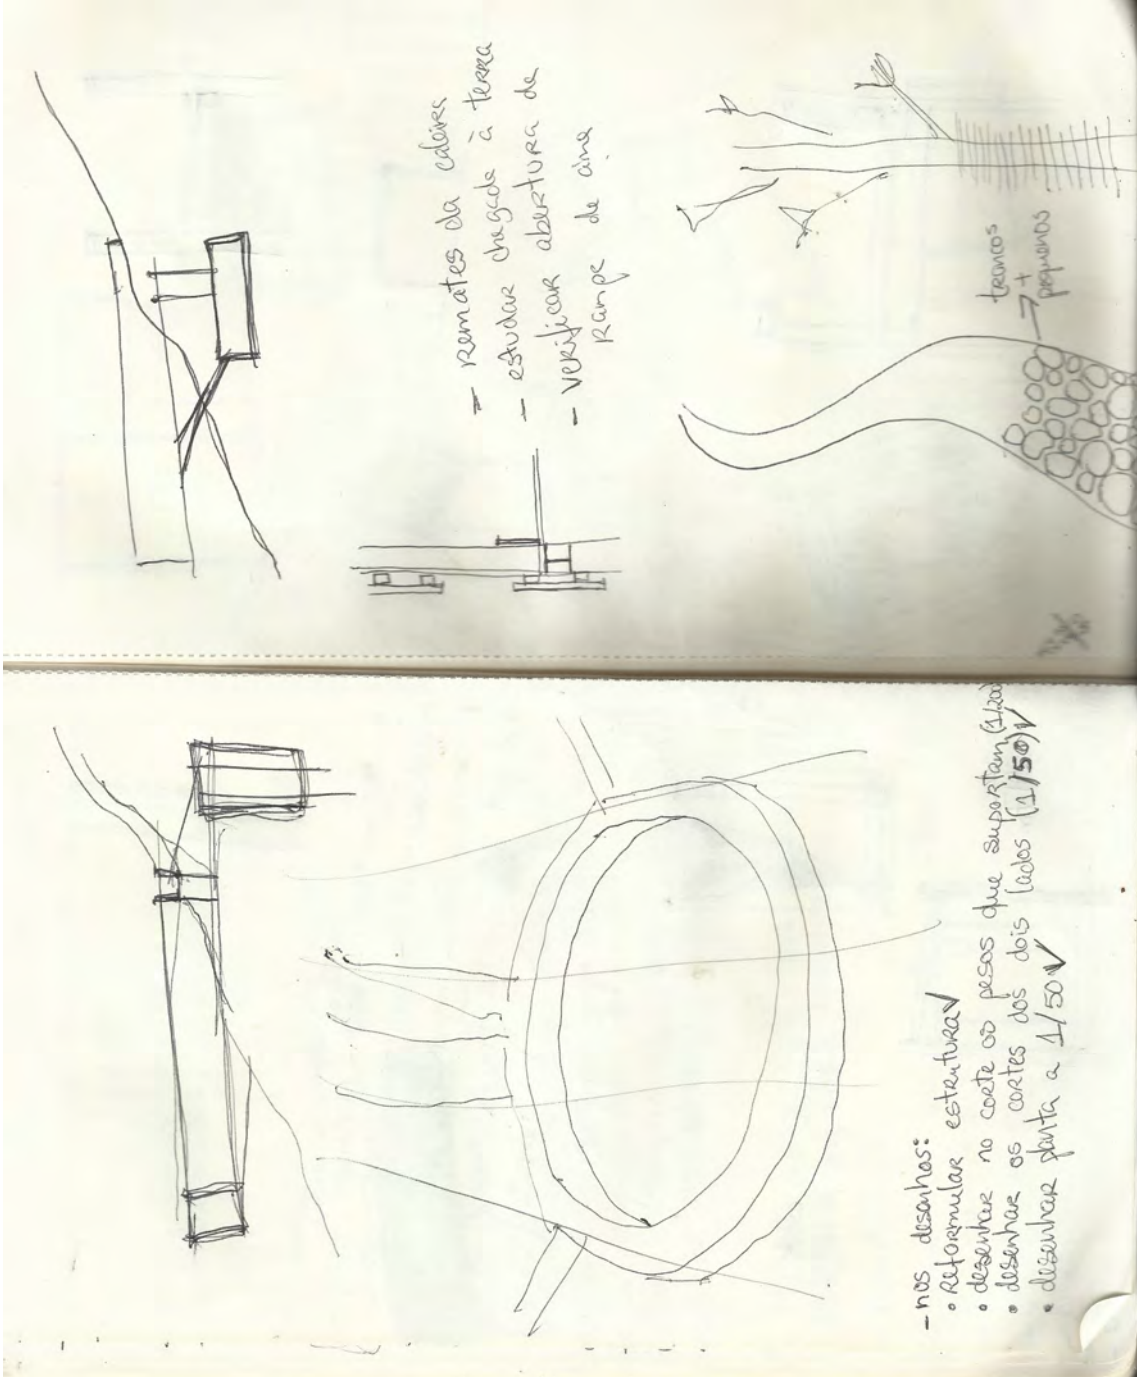 - nos desenhos:
• Reformular estrutura✓
• desenhar no corte os pesos que suportam (1/200)
• desenhar os cortes dos dois lados (1/50)✓
• desenhar planta a 1/50✓
- Remates da caleira
- estudar chegada à terra
- verificar abertura da
Rampa de cima
troncos
→ +
pequenos